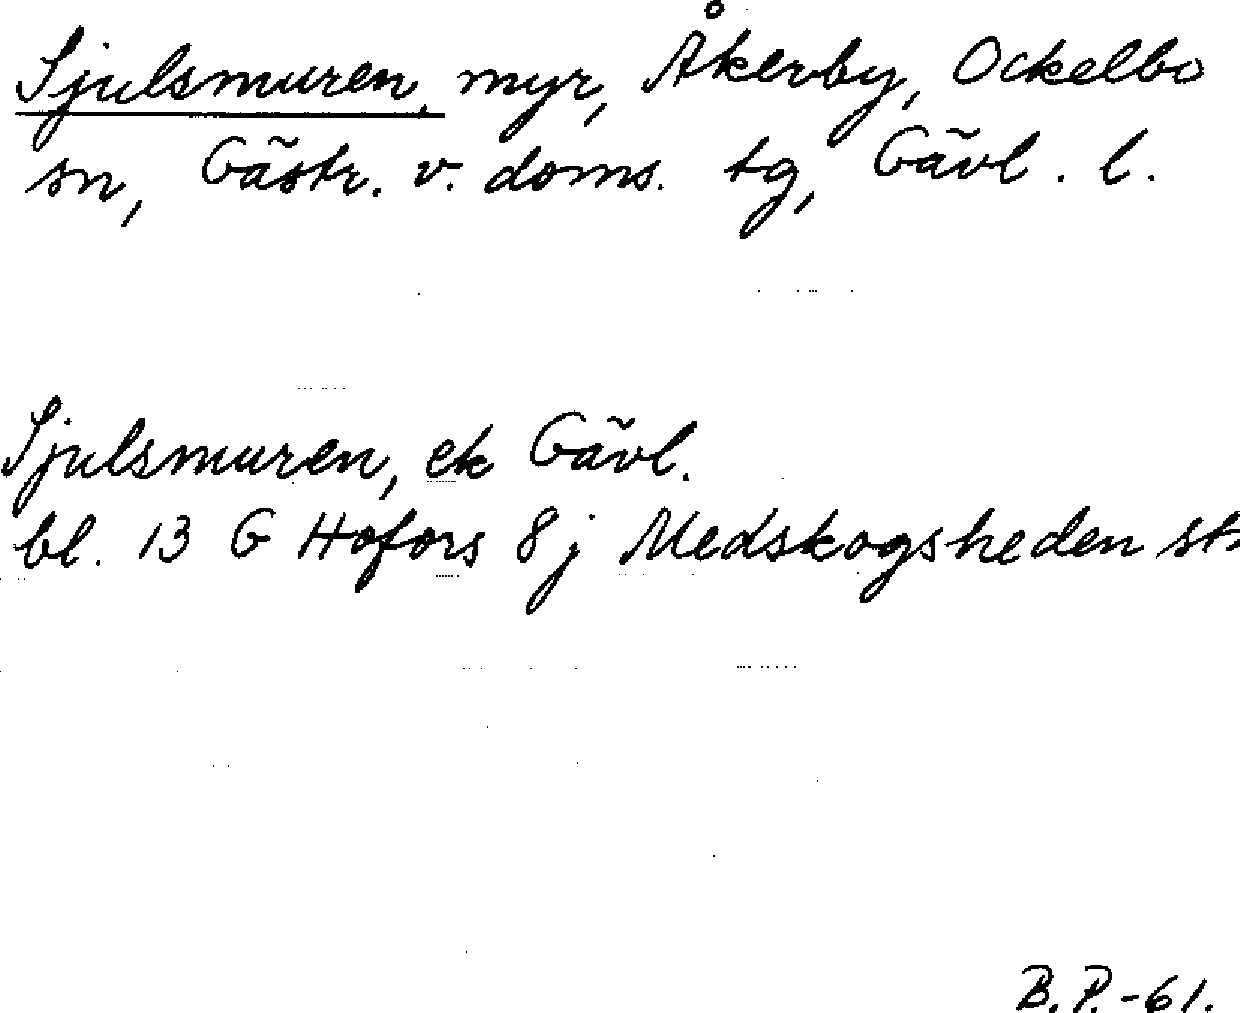 Sjulsmuren, myr, Åkerby, Ockelbo
sn, Gästr. v. doms. tg, Gävl. l.
Sjulsmuren, ek Gävl.
bl. 13 G Hofors 8j Medskogsheden st
B.P.-61.